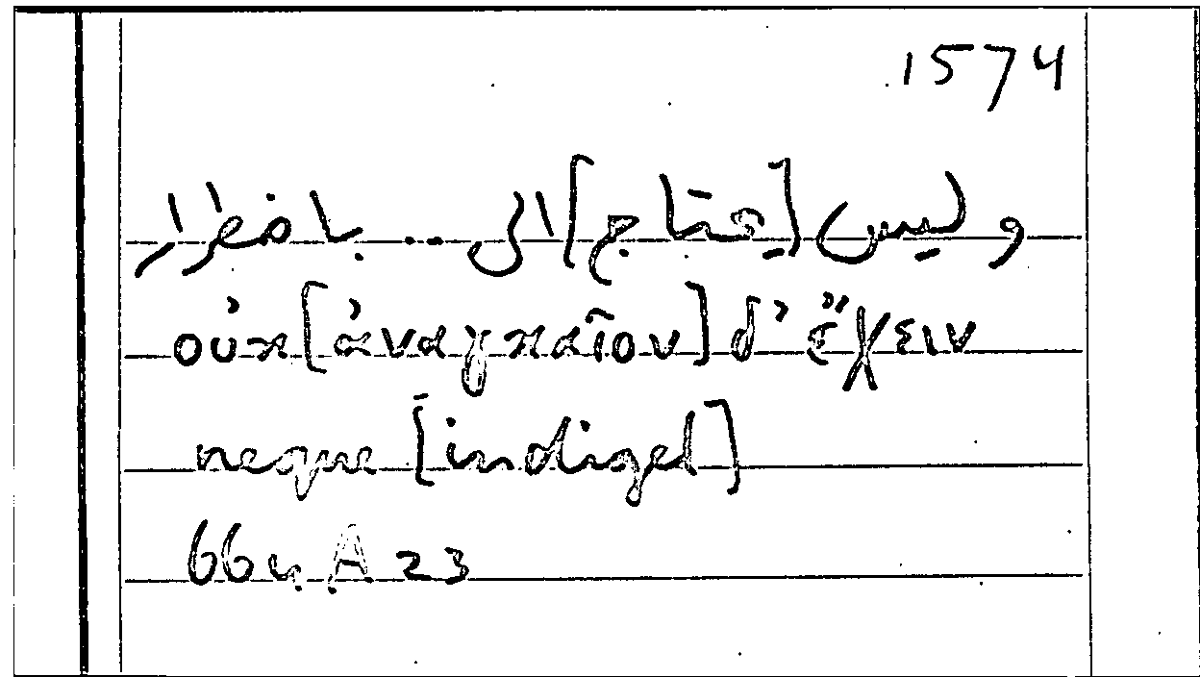 1574
وليس [يحتاج] الى .. باضطرار
οὐκ [ἀναγκαῖον] δ' ἔχειν
neque [indiget]
664 A 23